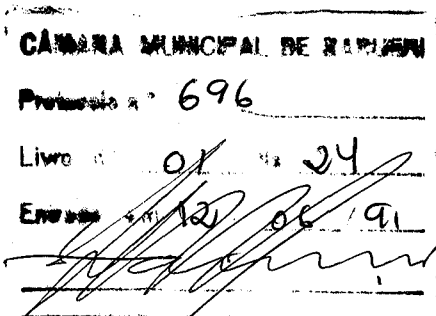 CÂMARA MUNICIPAL DE BARUERI
Protocolo n.º 696
Livro n.º 01 Fls 24
Entrada em 12 06 / 91